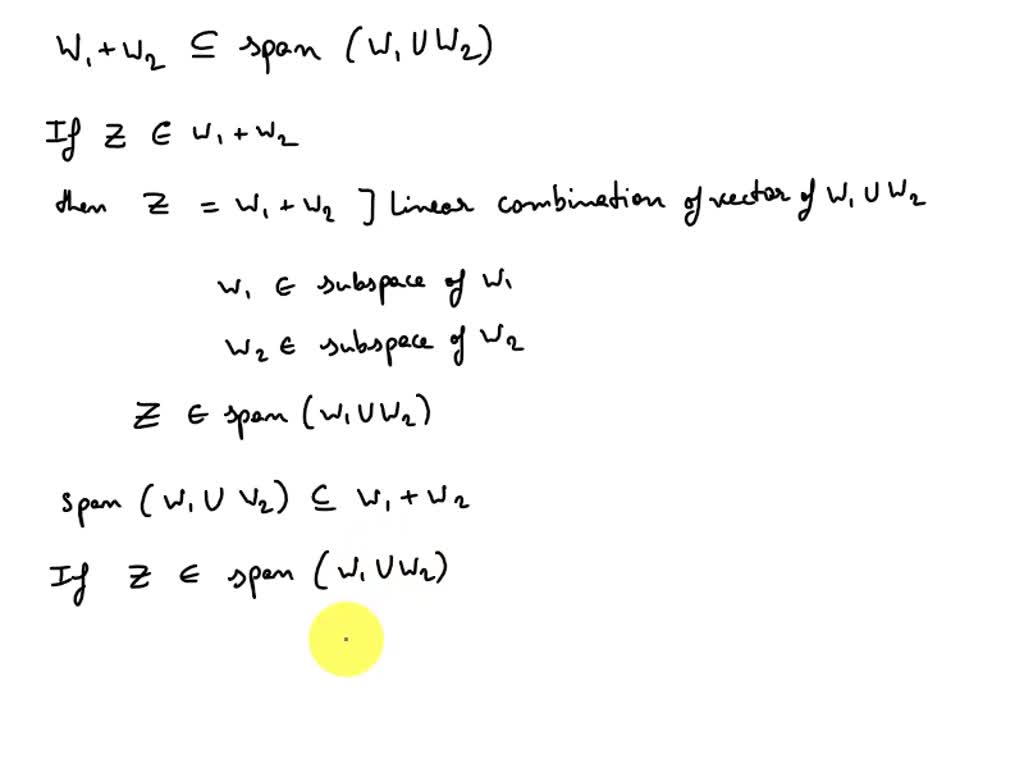 W₁ + W₂ ⊆ span (W₁ ∪ W₂)
If Z ∈ W₁ + W₂
then Z = W₁ + W₂ ] Linear combination of vector of W₁ ∪ W₂
W₁ ∈ subspace of W₁
W₂ ∈ subspace of W₂
Z ∈ span (W₁ ∪ W₂)
span (W₁ ∪ V₂) ⊆ W₁ + W₂
If Z ∈ span (W₁ ∪ W₂)